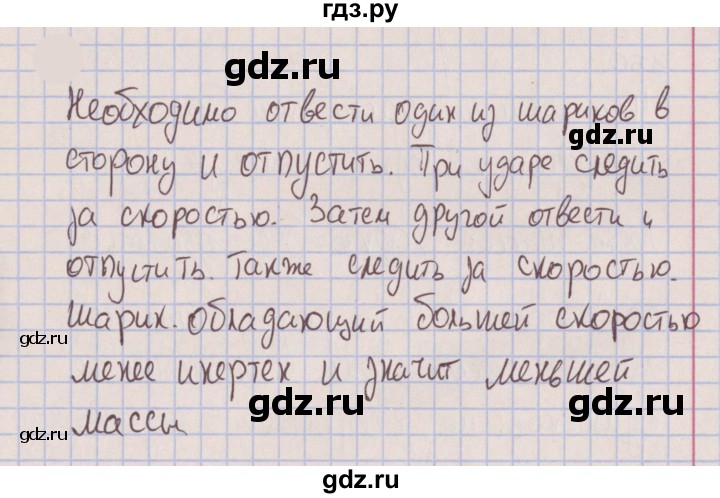 гдз.ру
gdz.ru
Необходимо отвести один из шариков в
gdz.ru
сторону и отпустить. При ударе следить
за скоростью. Затем другой отвести и
отпустить. Также следить за скоростью.
Шарик. обладающий большей скоростью
gdz.ru
менее инертен и значит меньшей
gdz.ru
gdz.ru
gdz.ru
массы
gdz.ru